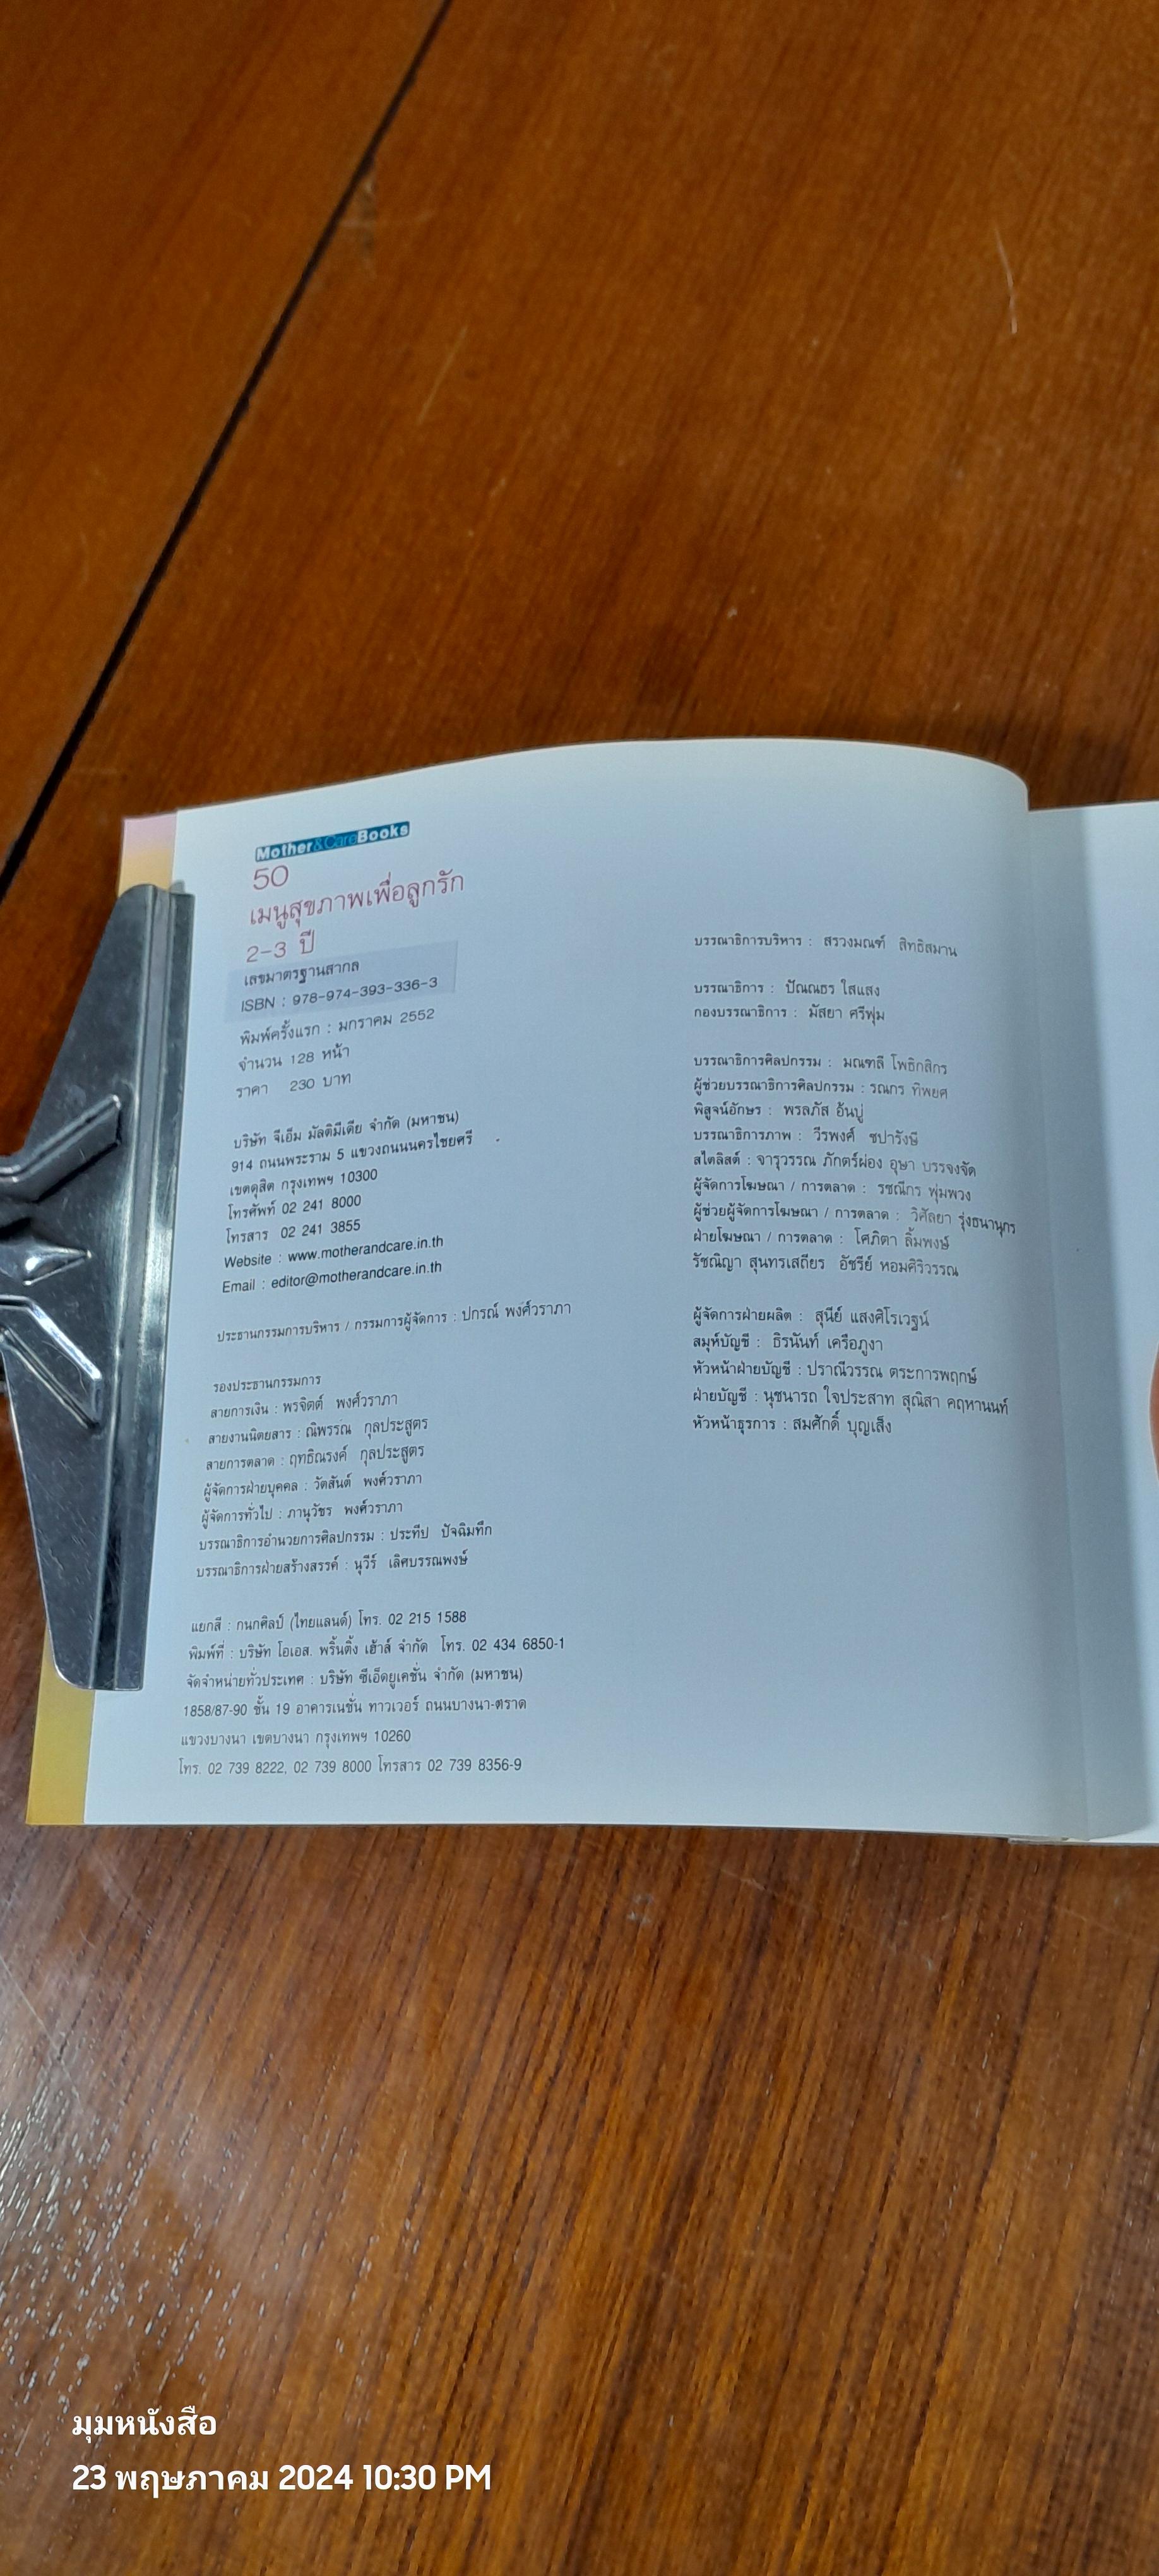 Mother&CareBooks
50
เมนูสุขภาพเพื่อลูกรัก
2-3 ปี
เลขมาตรฐานสากล
ISBN : 978-974-393-336-3
พิมพ์ครั้งแรก : มกราคม 2552
จำนวน 128 หน้า
ราคา 230 บาท
บริษัท จีเอ็ม มัลติมีเดีย จำกัด (มหาชน)
914 ถนนพระราม 5 แขวงถนนนครไชยศรี
เขตดุสิต กรุงเทพฯ 10300
โทรศัพท์ 02 241 8000
โทรสาร 02 241 3855
Website : www.motherandcare.in.th
Email : editor@motherandcare.in.th
ประธานกรรมการบริหาร / กรรมการผู้จัดการ : ปกรณ์ พงศ์วราภา
รองประธานกรรมการ
สายการเงิน : พรจิตต์ พงศ์วราภา
สายงานนิตยสาร : ณิพรรณ กุลประสูตร
สายการตลาด : ฤทธิณรงค์ กุลประสูตร
ผู้จัดการฝ่ายบุคคล : วัตสันต์ พงศ์วราภา
ผู้จัดการทั่วไป : ภานุวัชร พงศ์วราภา
บรรณาธิการอำนวยการศิลปกรรม : ประทีป ปัจฉิมทึก
บรรณาธิการฝ่ายสร้างสรรค์ : นุวีร์ เลิศบรรณพงษ์
แยกสี : กนกศิลป์ (ไทยแลนด์) โทร. 02 215 1588
พิมพ์ที่ : บริษัท โอเอส. พริ้นติ้ง เฮ้าส์ จำกัด โทร. 02 434 6850-1
จัดจำหน่ายทั่วประเทศ : บริษัท ซีเอ็ดยูเคชั่น จำกัด (มหาชน)
1858/87-90 ชั้น 19 อาคารเนชั่น ทาวเวอร์ ถนนบางนา-ตราด
แขวงบางนา เขตบางนา กรุงเทพฯ 10260
โทร. 02 739 8222, 02 739 8000 โทรสาร 02 739 8356-9
บรรณาธิการบริหาร : สรวงมณฑ์ สิทธิสมาน
บรรณาธิการ : ปัณณธร ใสแสง
กองบรรณาธิการ : มัสยา ศรีพุ่ม
บรรณาธิการศิลปกรรม : มณฑลี โพธิกสิกร
ผู้ช่วยบรรณาธิการศิลปกรรม : รณกร ทิพยศ
พิสูจน์อักษร : พรลภัส อ้นบู่
บรรณาธิการภาพ : วีรพงศ์ ชปารังษี
สไตลิสต์ : จารุวรรณ ภักตร์ผ่อง อุษา บรรจงจัด
ผู้จัดการโฆษณา / การตลาด : รชณีกร พุ่มพวง
ผู้ช่วยผู้จัดการโฆษณา / การตลาด : วิศัลยา รุ่งธนานุกร
ฝ่ายโฆษณา / การตลาด : โศภิตา ลิ้มพงษ์
รัชณิญา สุนทรเสถียร อัชรีย์ หอมศิริวรรณ
ผู้จัดการฝ่ายผลิต : สุนีย์ แสงศิโรเวฐน์
สมุห์บัญชี : ธิรนันท์ เครือภูงา
หัวหน้าฝ่ายบัญชี : ปราณีวรรณ ตระการพฤกษ์
ฝ่ายบัญชี : นุชนารถ ใจประสาท สุณิสา คฤหานนท์
หัวหน้าธุรการ : สมศักดิ์ บุญเส็ง
มุมหนังสือ
23 พฤษภาคม 2024 10:30 PM